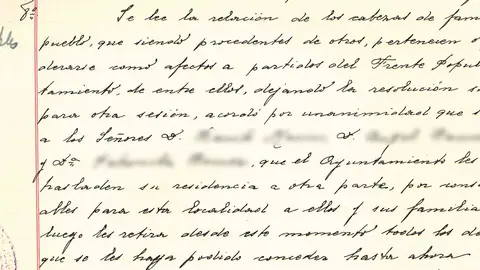 8º Se lee la relación de los cabezas de fam
pueblo, que siendo procedentes de otros, pertenecen o
derarse como afectos a partidos del Frente Popul
tamiento, de entre ellos, dejando la resolución s
para otra sesión, acordó por unanimidad que s
a los Señores D. D.
y Dª , que el Ayuntamiento les
trasladen su residencia a otra parte, por cons
ables para esta localidad a ellos y sus familia
luego les retira desde este momento todos los de
que se les haya podido conceder hasta ahora